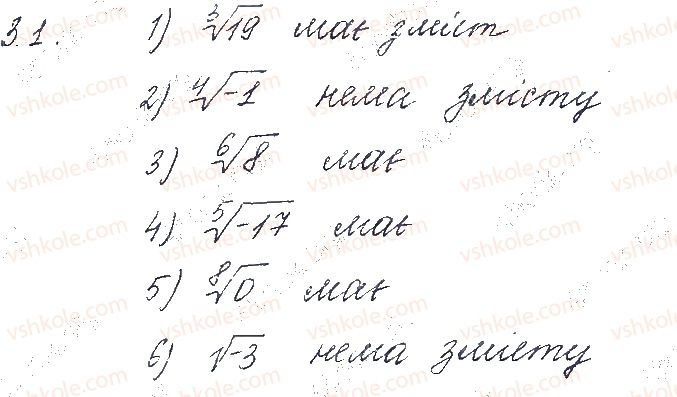 3.1. 1) ∛19 має зміст
2) ∜-1 нема змісту
3) ⁶√8 має
4) ⁵√-17 має
5) ⁸√0 має
6) √-3 нема змісту